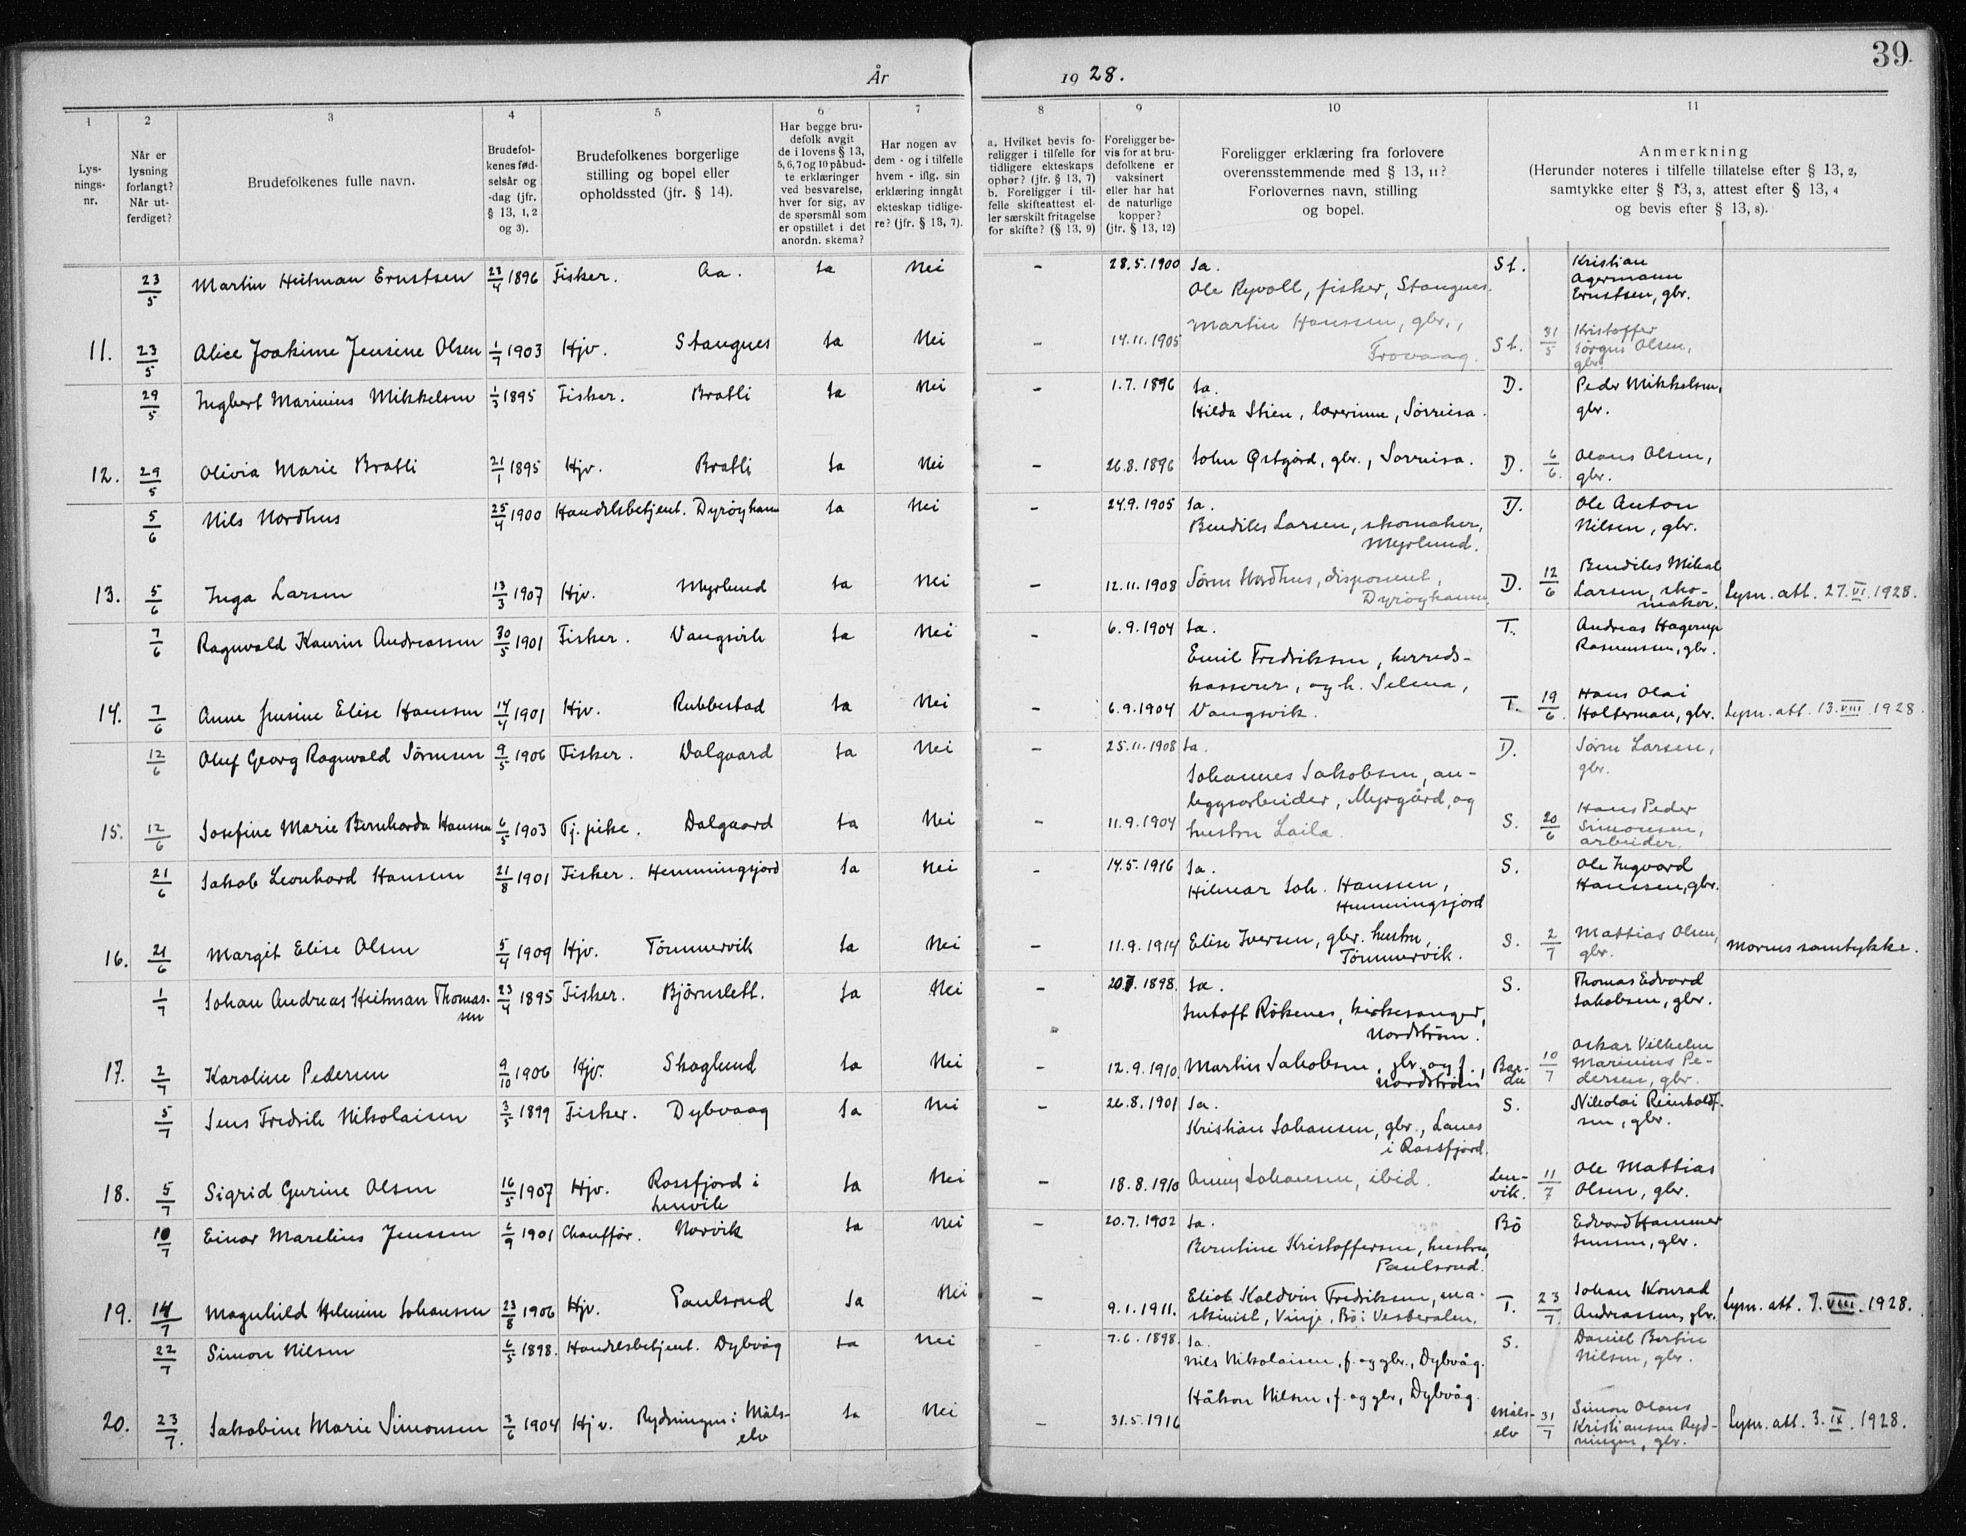 39.
År 1928.
1 2 3 4 5 6 7 8 9 10 11
Lys-
nings-
nr.
Når er
lysning
forlangt?
Når ut-
ferdiget?
Brudefolkenes fulle navn.
Brudefol-
kenes fød-
selsår og
-dag (jfr.
§ 13, 1, 2
og 3).
Brudefolkenes borgerlige
stilling og bopel eller
opholdssted (jfr. § 14).
Har begge bru-
defolk avgit
de i lovens § 13,
5, 6, 7 og 10 påbud-
te erklæringer
ved besvarelse,
hver for sig, av
de spørsmål som
er opstillet i det
anordn. skema?
Har nogen av
dem - og i tilfelle
hvem - iflg. sin
erklæring inngåt
ekteskap tidlige-
re? (jfr. § 13, 7).
a. Hvilket bevis fo-
religger i tilfelle for
tidligere ekteskaps
ophør? (jfr. § 13, 7)
b. Foreligger i til-
felle skifteattest el-
ler særskilt fritagelse
for skifte? (§ 13, 9)
Foreligger be-
vis for at bru-
defolkene er
vaksinert
eller har hat
de naturlige
kopper?
(jfr. § 13, 12)
Foreligger erklæring fra forlovere
overensstemmende med § 13, 11?
Forlovernes navn, stilling
og bopel.
Anmerkning
(Herunder noteres i tilfelle tillatelse efter § 13, 2,
samtykke efter § 13, 3, attest efter § 13, 4
og bevis efter § 13, 8).
23/5 Martin Heitman Ernstsen 23/4 1896 Fisker. Aa. Ja Nei - 28.5.1900 Ja. St. Kristian
Ole Ryvoll, fisker, Stangnes. Agermann
Ernstsen, gbr.
Martin Hanssen, gbr.,
11. 23/5 Alice Joakime Jensine Olsen 1/7 1903 Hjv. Stangnes Ja Nei - 14.11.1905 Trovaag. St. 31/5 Kristoffer
Jørgus Olsen,
gbr.
29/5 Ingbert Marinius Mikkelsen 1/3 1895 Fisker. Bratli Ja Nei - 1.7.1896 Ja. D. Peder Mikkelsen,
Hilda Stien, lærerinne, Sørreisa. gbr.
12. 29/5 Olivia Marie Bratli 21/1 1895 Hjv. Bratli Ja Nei - 26.8.1896 John Østgård, gbr., Sørreisa. D. 6/6. Olaus Olsen,
gbr.
5/6 Nils Nordhus 25/4 1900 Handelsbetjent. Dyrøyhamn Ja Nei - 24.9.1905 Ja. D. Ole Anton
Bendiks Larsen, skomaker, Nilsen, gbr.
Myrlund.
13. 5/6 Inga Larsen 13/3 1907 Hjv. Myrlund Ja Nei - 12.11.1908 Søren Nordhus, disponent, D. 12/6 Bendiks Mikal
Dyrøyhamn. Larsen, sko- Lysn. att. 27.VI.1928.
maker.
7/6 Ragnvald Kaurin Andreassen 30/5 1901 Fisker. Vangsvik Ja Nei - 6.9.1904 Ja. T. Andreas Hagerup
Emil Fredriksen, herreds- Rasmussen, gbr.
kasserer, og h. Selma,
14. 7/6 Anne Jensine Elise Hanssen 14/4 1901 Hjv. Rubbestad Ja Nei - 6.9.1904 Vangsvik. T. 19/6. Hans Olai
Holterman, gbr. Lysn. att. 13.VIII.1928.
12/6 Oluf Georg Ragnvald Sørensen 9/5 1906 Fisker. Dalgaard Ja Nei - 25.11.1908 Ja. D. Søren Larsen,
Johannes Jakobsen, an- gbr.
leggsarbeider, Myrgård, og
15. 12/6 Josefine Marie Bernharda Hanssen 6/5 1903 Tj. pike. Dalgaard Ja Nei - 11.9.1904 hustru Laila. S. 20/6 Hans Peder
Simonsen,
arbeider.
21/6 Jakob Leonhard Hansen 21/8 1901 Fisker. Hemmingsjord Ja Nei - 14.5.1916 Ja. S. Ole Ingvard
Hilmar Joh. Hanssen, Hanssen, gbr.
Hemmingsjord
16. 21/6 Margit Elise Olsen 5/4 1909 Hjv. Tømmervik Ja Nei - 11.9.1914 Elise Iversen, gbr. hustru, S. 2/7 Mattias Olsen, Morens samtykke.
Tømmervik. gbr.
1/7 Johan Andreas Heitman Thomas- 23/4 1895 Fisker. Bjørnslett. Ja Nei - 20.7.1898. Ja. S. Thomas Edvard
sen Jakobsen, gbr.
Røkenes, kirkesanger,
Nordstrøm.
17. 2/7 Karoline Pedersen 9/10 1906 Hjv. Skoglund Ja Nei - 12.9.1910 Martin Jakobsen, gbr. og f., Bar- 10/7 Oskar Vilhelm
Nordstrøm du Marinius Pe-
dersen, gbr.
5/7 Jens Fredrik Nikolaisen 3/5 1899 Fisker. Dybvaag Ja Nei - 26.8.1901 Ja. S. Nikolai Reinholdt-
Kristian Johansen, gbr., Lanes sen, gbr.
i Rossfjord.
18. 5/7 Sigrid Gurine Olsen 16/5 1907 Hjv. Rossfjord i Ja Nei - 18.8.1910 Anny Johansen, ibid. Len- 11/7 Ole Mattias
Lenvik vik. Olsen, gbr.
10/7 Einar Marelius Jenssen 6/9 1901 Chauffør. Norvik Ja Nei - 20.7.1902 Ja. Bø Edvard Hammer
Berntine Kristoffersen, hustru, Jenssen, gbr.
Paulsrud.
19. 14/7 Magnhild Helmine Johansen 23/8 1906 Hjv. Paulsrud Ja Nei - 9.1.1911. Eliot Kaldvin Fredriksen, ma- T. 23/7. Johan Konrad
skinist, Vinje, Bø i Vesterålen. Andreassen, gbr. Lysn. att. 7.VIII.1928.
22/7 Simon Nilsen 6/5 1898. Handelsbetjent. Dybvåg Ja Nei - 7.6.1898. Ja. S. Daniel Bertin
Nils Nikolaisen, f. og gbr., Dybvåg. Nilsen, gbr.
Håkon Nilsen, f. og gbr, Dybvåg.
20. 23/7. Jakobine Marie Simonsen 3/6 1904 Hjv. Rydningen i Måls- Ja Nei - 31.5.1916 Måls- 31/7 Simon Olaus
elv elv Kristiansen Ryd- Lysn. att. 3.IX.1928.
ningen, gbr.